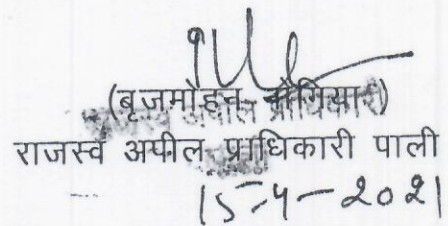 (बृजमोहन नोगिया)
राजस्व अपील प्राधिकारी पाली
15-4-2021